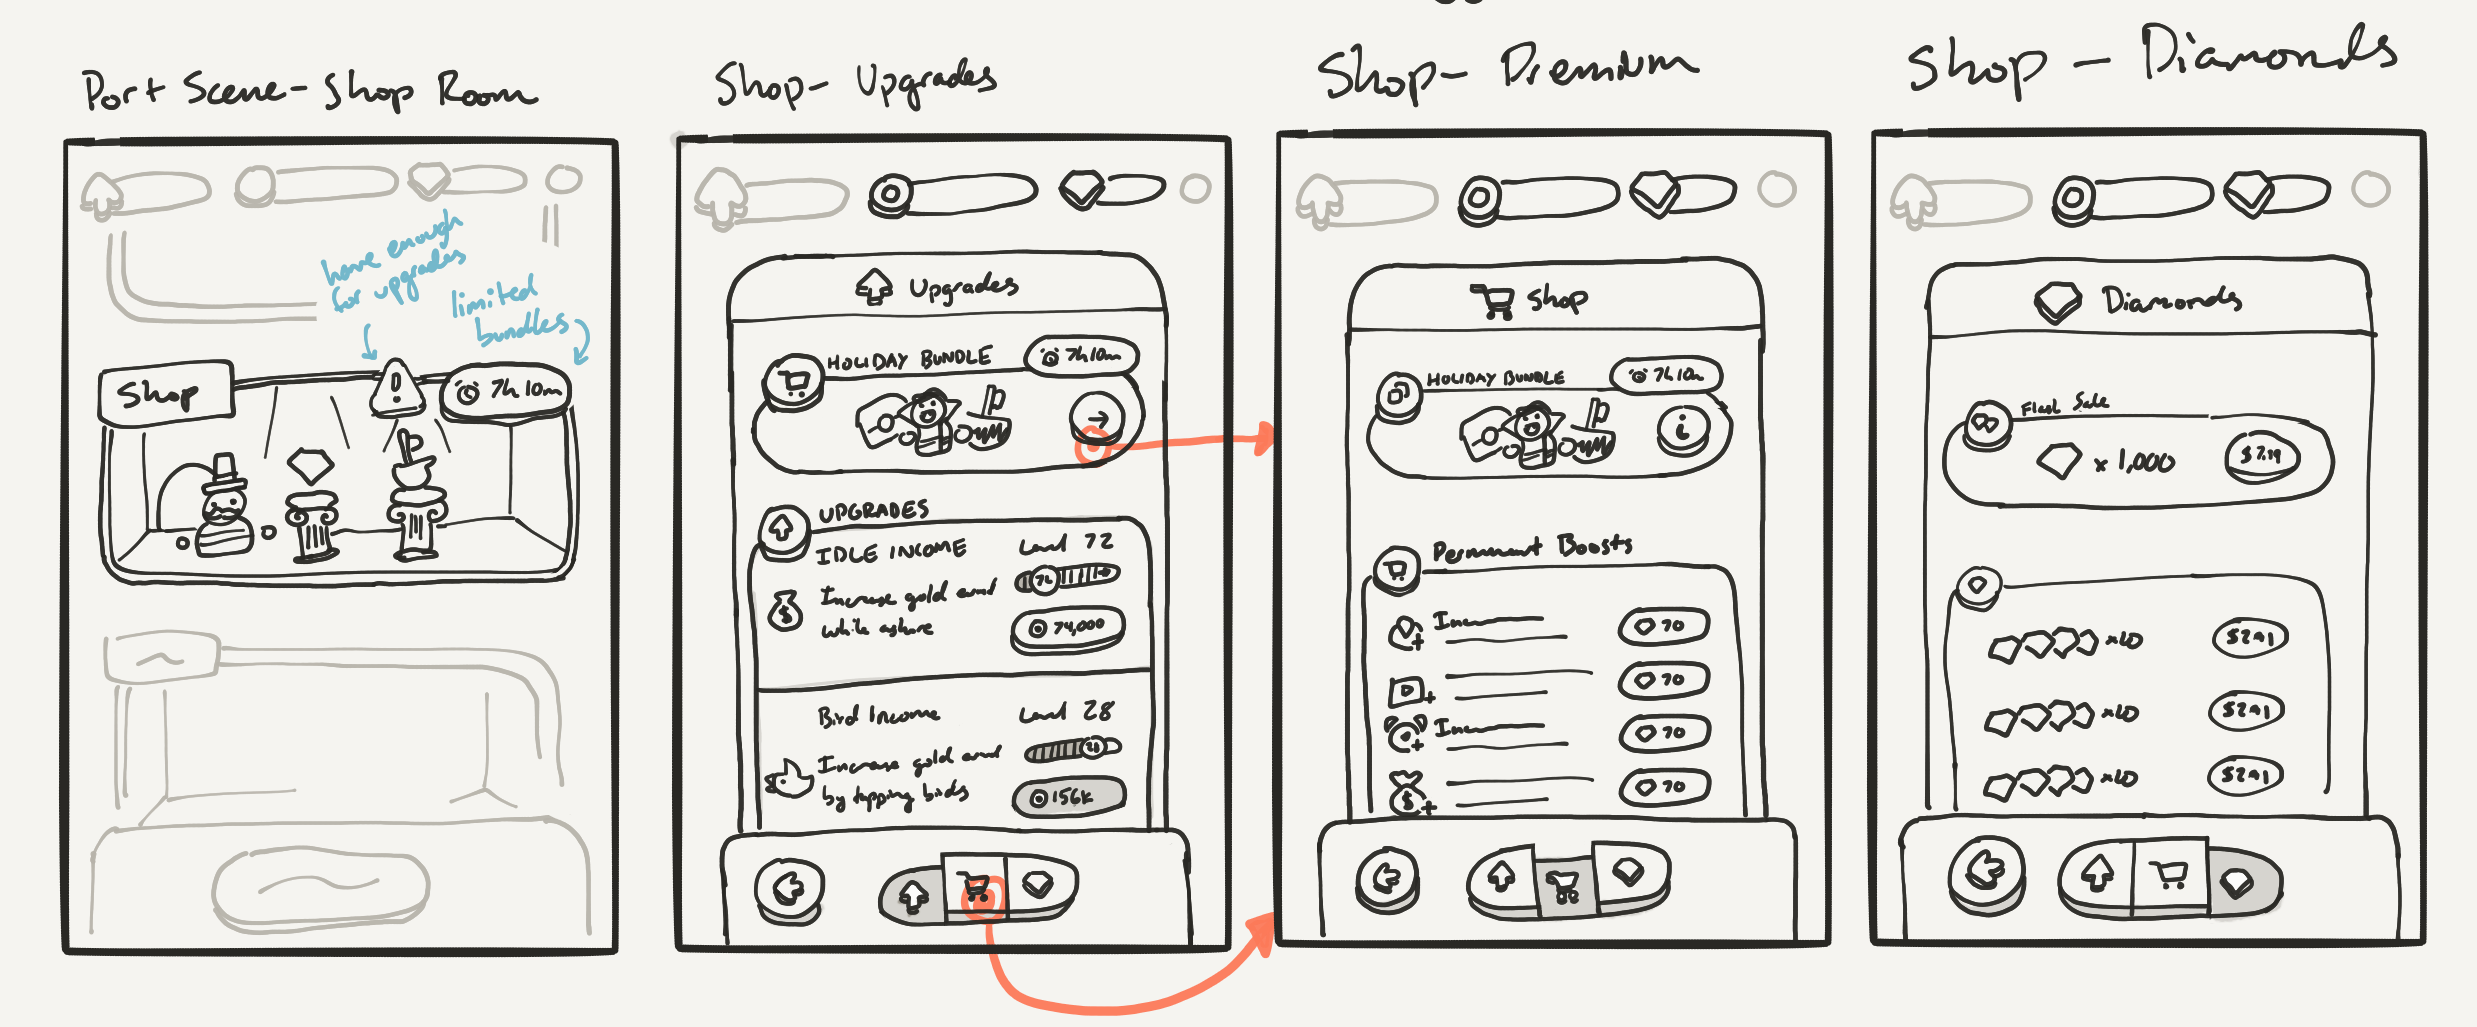 Port Scene - Shop Room
have enough
for upgrades
limited
bundles
Shop
7h 10m
Shop - Upgrades
Upgrades
HOLIDAY BUNDLE
7h 10m
UPGRADES
IDLE INCOME
Level 72
72
Increase gold earned
while ashore
$
74,000
Bird Income
Level 28
28
Increase gold earned
by tapping birds
156K
Shop - Premium
Shop
HOLIDAY BUNDLE
7h 10m
i
Permanent Boosts
70
70
70
$
70
Shop - Diamonds
Diamonds
Flash Sale
x 1,000
x10
$2.91
x10
$2.91
x10
$2.91